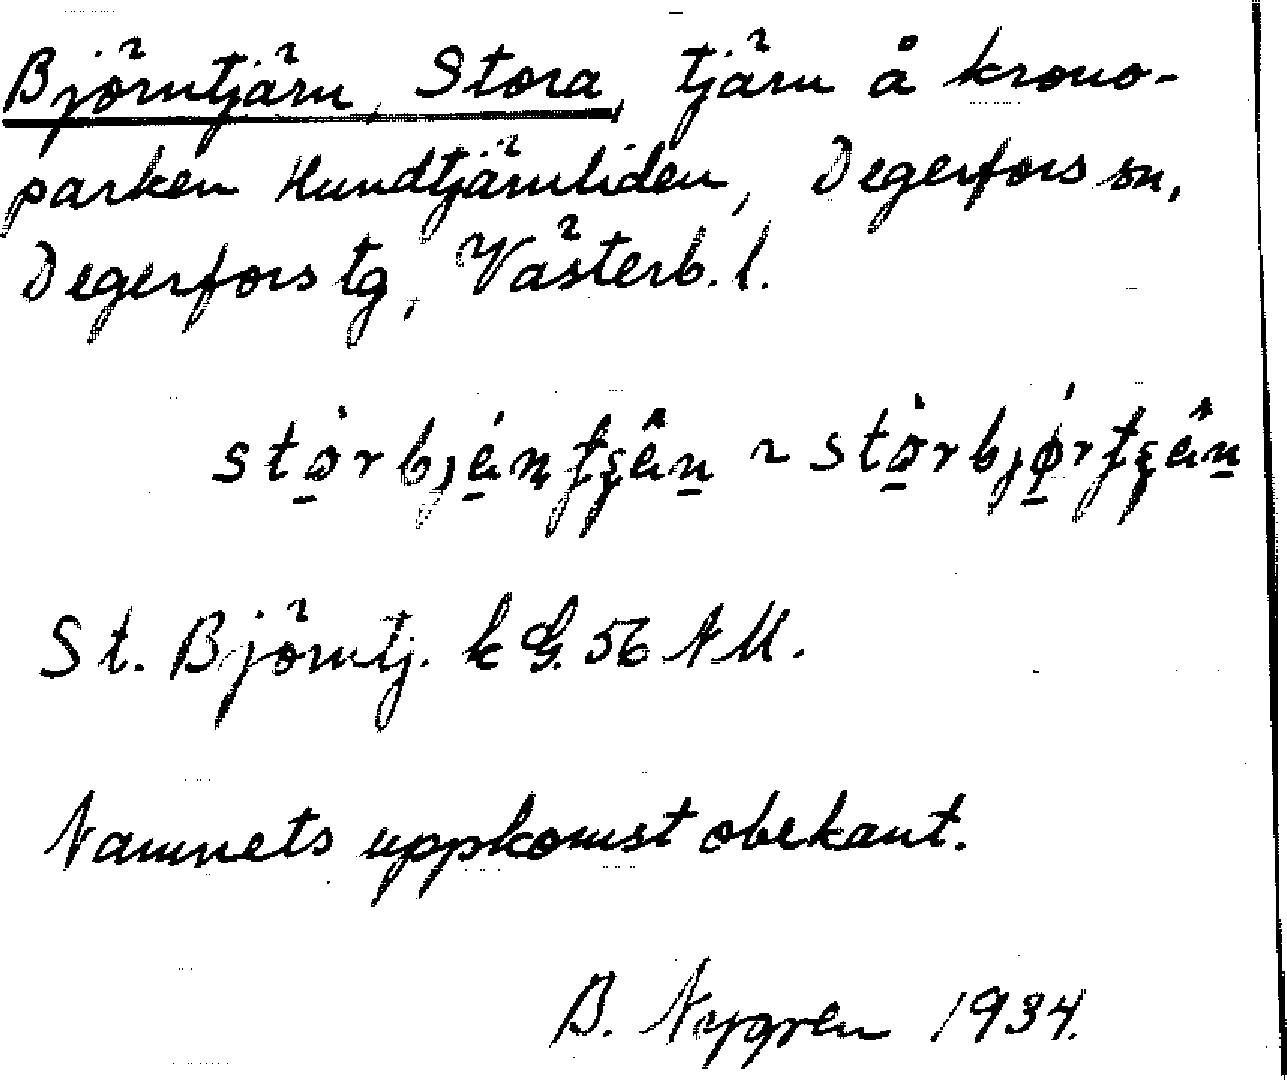 Björntjärn, Stora, tjärn å krono-
parken Hundtjärnliden, Degerfors sn,
Degerfors tg, Västerb. l.
St. Björntj. k G. 56 NM.
Namnets uppkomst obekant.
B. Nygren 1934.